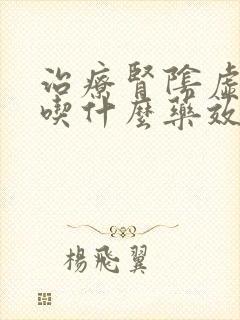 治療腎陰虛
喫什麼藥效
楊飛翼